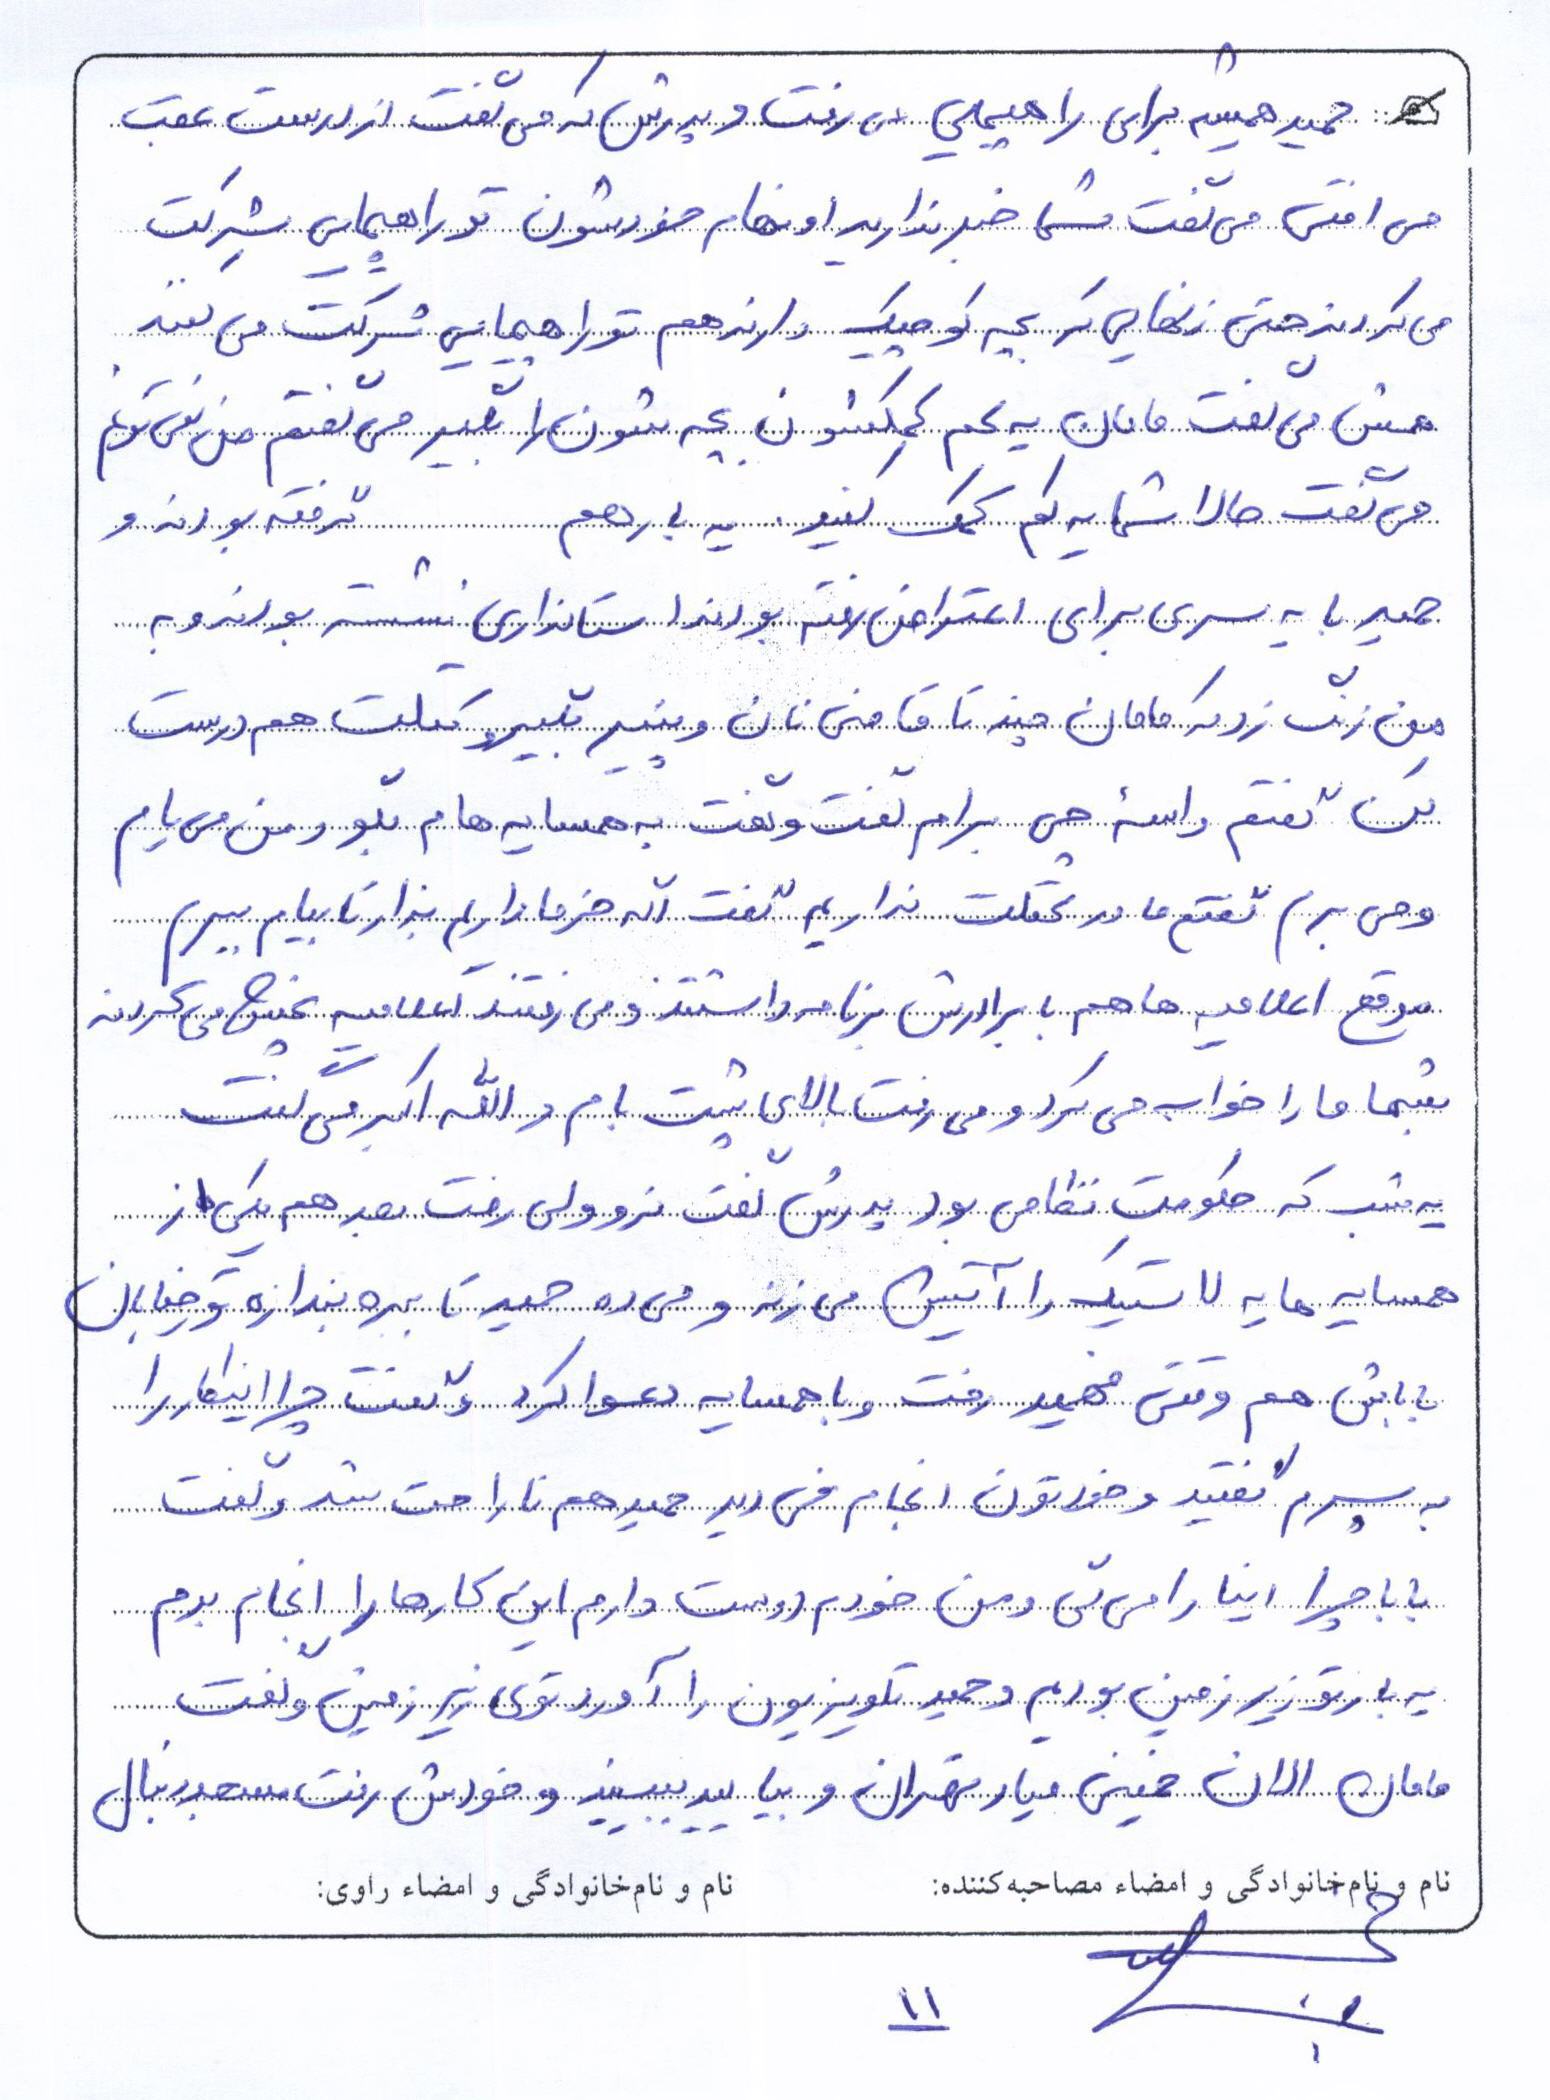 حمید همیشه برای راهپیمایی می رفت و پدرش که می گفت از درست عقب
می افتی می گفت شما خبر ندارید اونهام خودشون تو راهپیمایی شرکت
می کردند حتی زنهایی که بچه کوچیک دارند هم تو راهپیمایی شرکت می کنند
همش می گفت مامان یه کم کمکشون بچه شون را بگیر می گفتم من نمی تونم
می گفت حالا شما یه کم کمک کنید. یه بار هم گرفته بودند و
حمید با یه سری برای اعتراض رفته بودند استانداری نشسته بودند و به
من زنگ زد که مامان چند تا قامتی نان و پنیر بگیر و کتلت هم درست
کن گفتم واسۀ چی برام گفت و گفت به همسایه ها م بگو و من می یام
و می برم گفتم ما در کتلت نداریم گفت اگه خرما داریم بذار تا بیام ببرم
موقع اعلامیه ها هم با برادرش برنامه داشتند و می رفتند اعلامیه پخش می کردند
شبها ما را خواب می کرد و می رفت بالای پشت بام و الله اکبر می گفت
یه شب که حکومت نظامی بود پدرش گفت نرو ولی رفت بعد هم یکی از
همسایه ها یه لاستیک را آتیش می زند و می ده حمید تا ببره بندازه تو خیابان
باباش هم وقتی فهمید رفت و با همسایه دعوا کرد و گفت چرا اینکار را
به پسرم گفتید و خودتون انجام نمی دید حمید هم ناراحت شد و گفت
بابا چرا اینا را می گی و من خودم دوست دارم این کارها را انجام بدم
یه بار تو زیر زمین بودیم و حمید تلویزیون را آورد توی زیر زمین و گفت
مامان الان خمینی میاد تهران و بیا یید ببینید و خودش رفت مسجد دنبال
نام و نام‌خانوادگی و امضاء مصاحبه‌کننده:
نام و نام‌خانوادگی و امضاء راوی:
۱۱